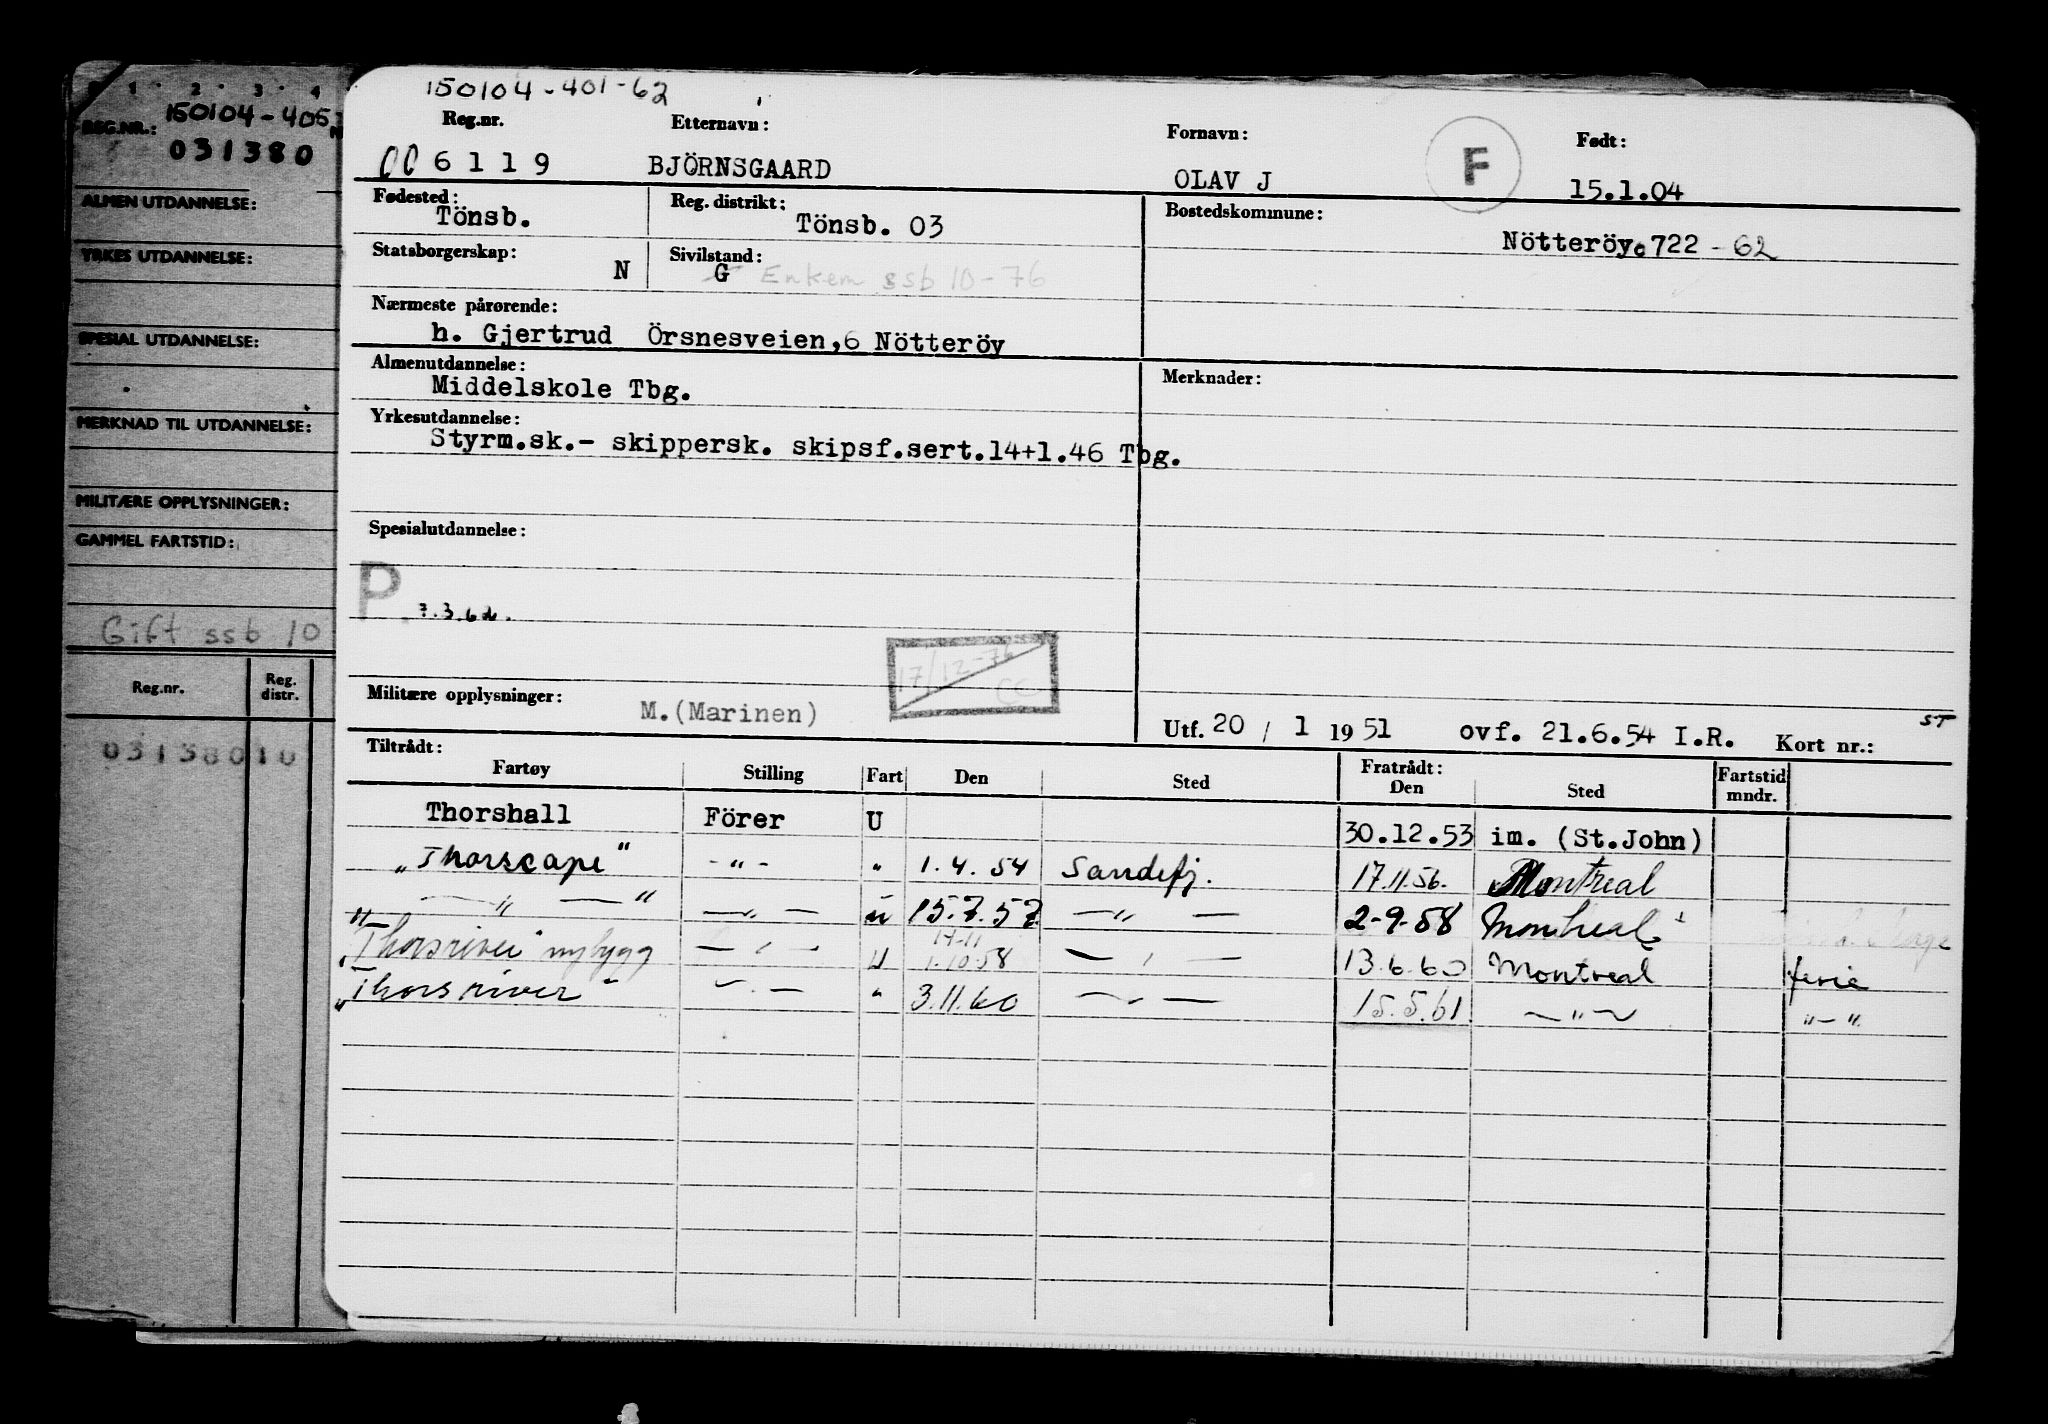 1 · 2 · 3 · 4
REG.NR.: 150104-405
031380
ALMEN UTDANNELSE:
YRKES UTDANNELSE:
SPESIAL UTDANNELSE:
MERKNAD TIL UTDANNELSE:
MILITÆRE OPPLYSNINGER:
GAMMEL FARTSTID:
Gift ssb 10
Reg.nr. Reg. distr.
03138010
150104-401-62
Reg.nr. Etternavn: Fornavn: Født:
006119 BJÖRNSGAARD OLAV J F 15.1.04
Fødested: Tönsb. Reg. distrikt: Tönsb. 03 Bostedskommune:
Nötteröy 722 - 62
Statsborgerskap: N Sivilstand: G Enkem ssb 10-76
Nærmeste pårørende:
h. Gjertrud Örsnesveien,6 Nötteröy
Almenutdannelse: Merknader:
Middelskole Tbg.
Yrkesutdannelse:
Styrm.sk.- skippersk. skipsf.sert.14+1.46 Tbg.
Spesialutdannelse:
P 7.3.62.
17/12-76 CC
Militære opplysninger: M.(Marinen)
Utf. 20 / 1 1951 ovf. 21.6.54 I.R. Kort nr.: ST
Tiltrådt: Fratrådt:
Fartøy Stilling Fart Den Sted Den Sted Fartstid mndr.
Thorshall Förer U 30.12.53 im. (St.John)
"Thorscape" -"- " 1.4.54 Sandefj. 17.11.56. Montreal
— " — " — " — u 15.7.57 — " — 2-9-58 Montreal
17-11
"Thorsriver" nybygg — " — U 1.10.58 — " — 13.6.60 Montreal ferie
"Thorsriver" — " — " 3.11.60 — " — 15.5.61. — " — " — "